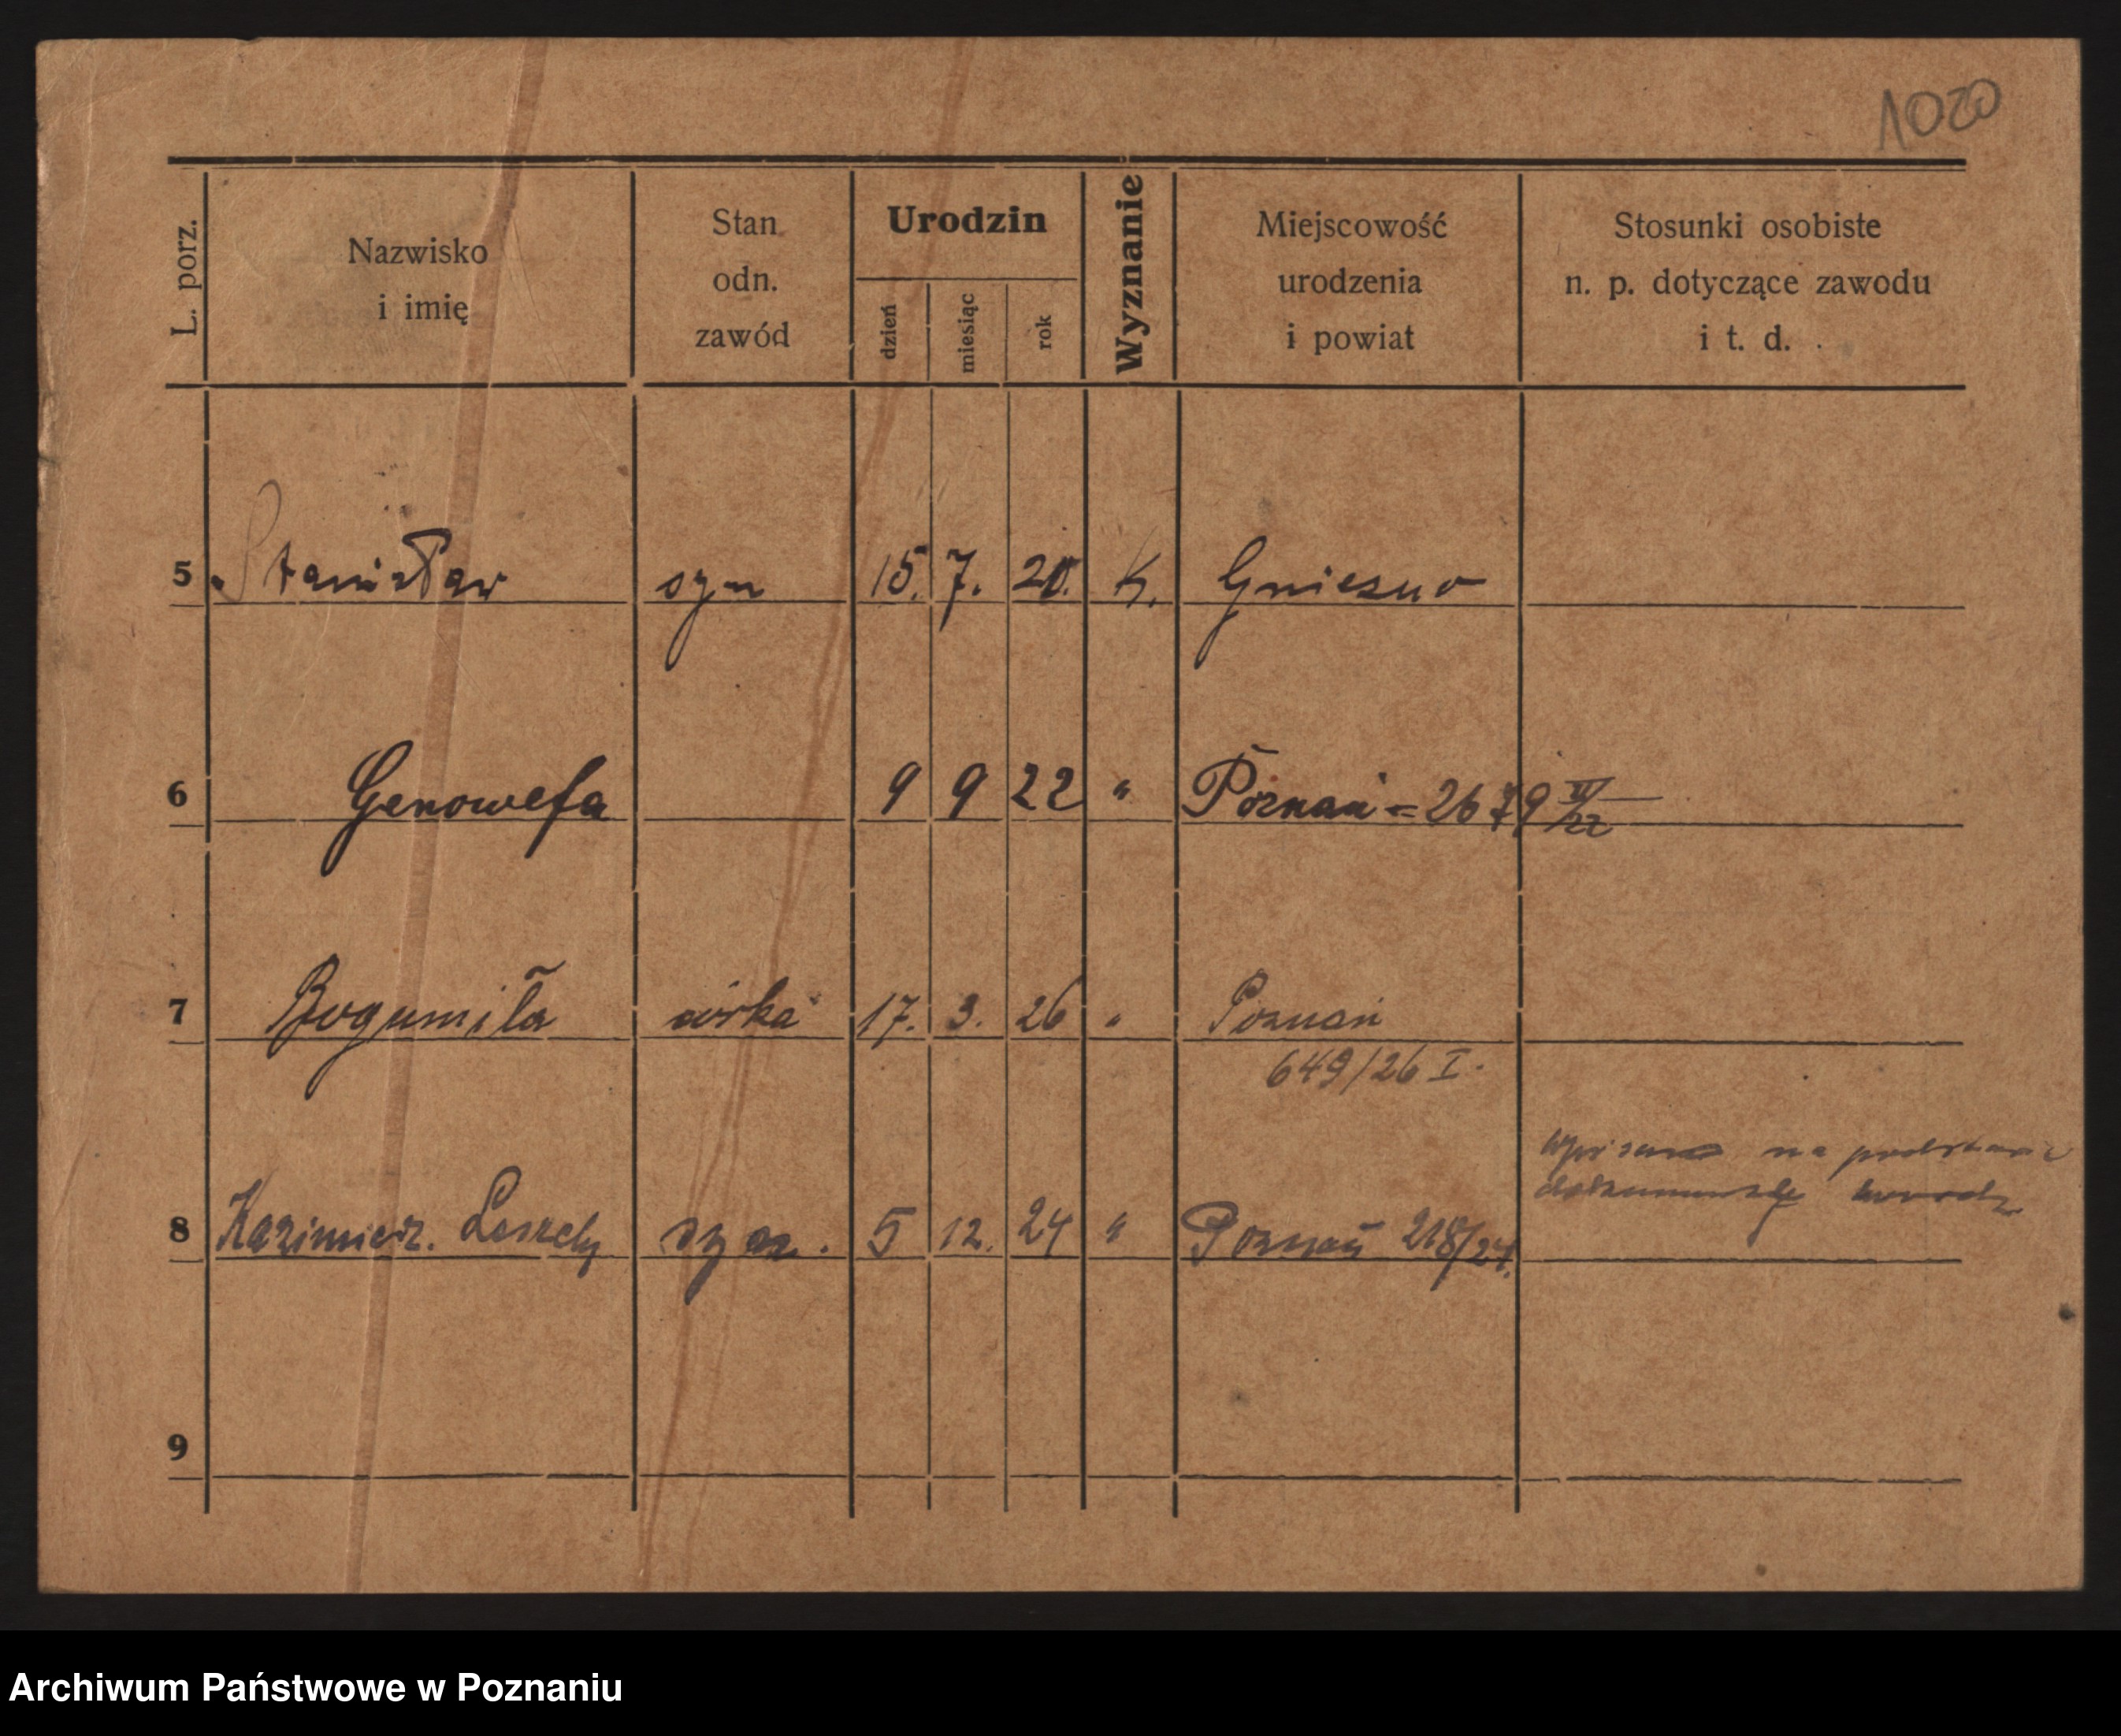 1020
L. porz.
Nazwisko
i imię
Stan
odn.
zawód
Urodzin
dzień
miesiąc
rok
Wyznanie
Miejscowość
urodzenia
i powiat
Stosunki osobiste
n. p. dotyczące zawodu
i t. d.
5 Stanisław syn 15. 7. 20. K. Gniezno
6 Genowefa 9 9 22 " Poznań = 2679
7 Bogumiła córka 17. 3. 26 " Poznań
649/26 I.
na podstawie
8 Kazimierz. syn. 5 12. 24 " Poznań 218/24.
9
Archiwum Państwowe w Poznaniu